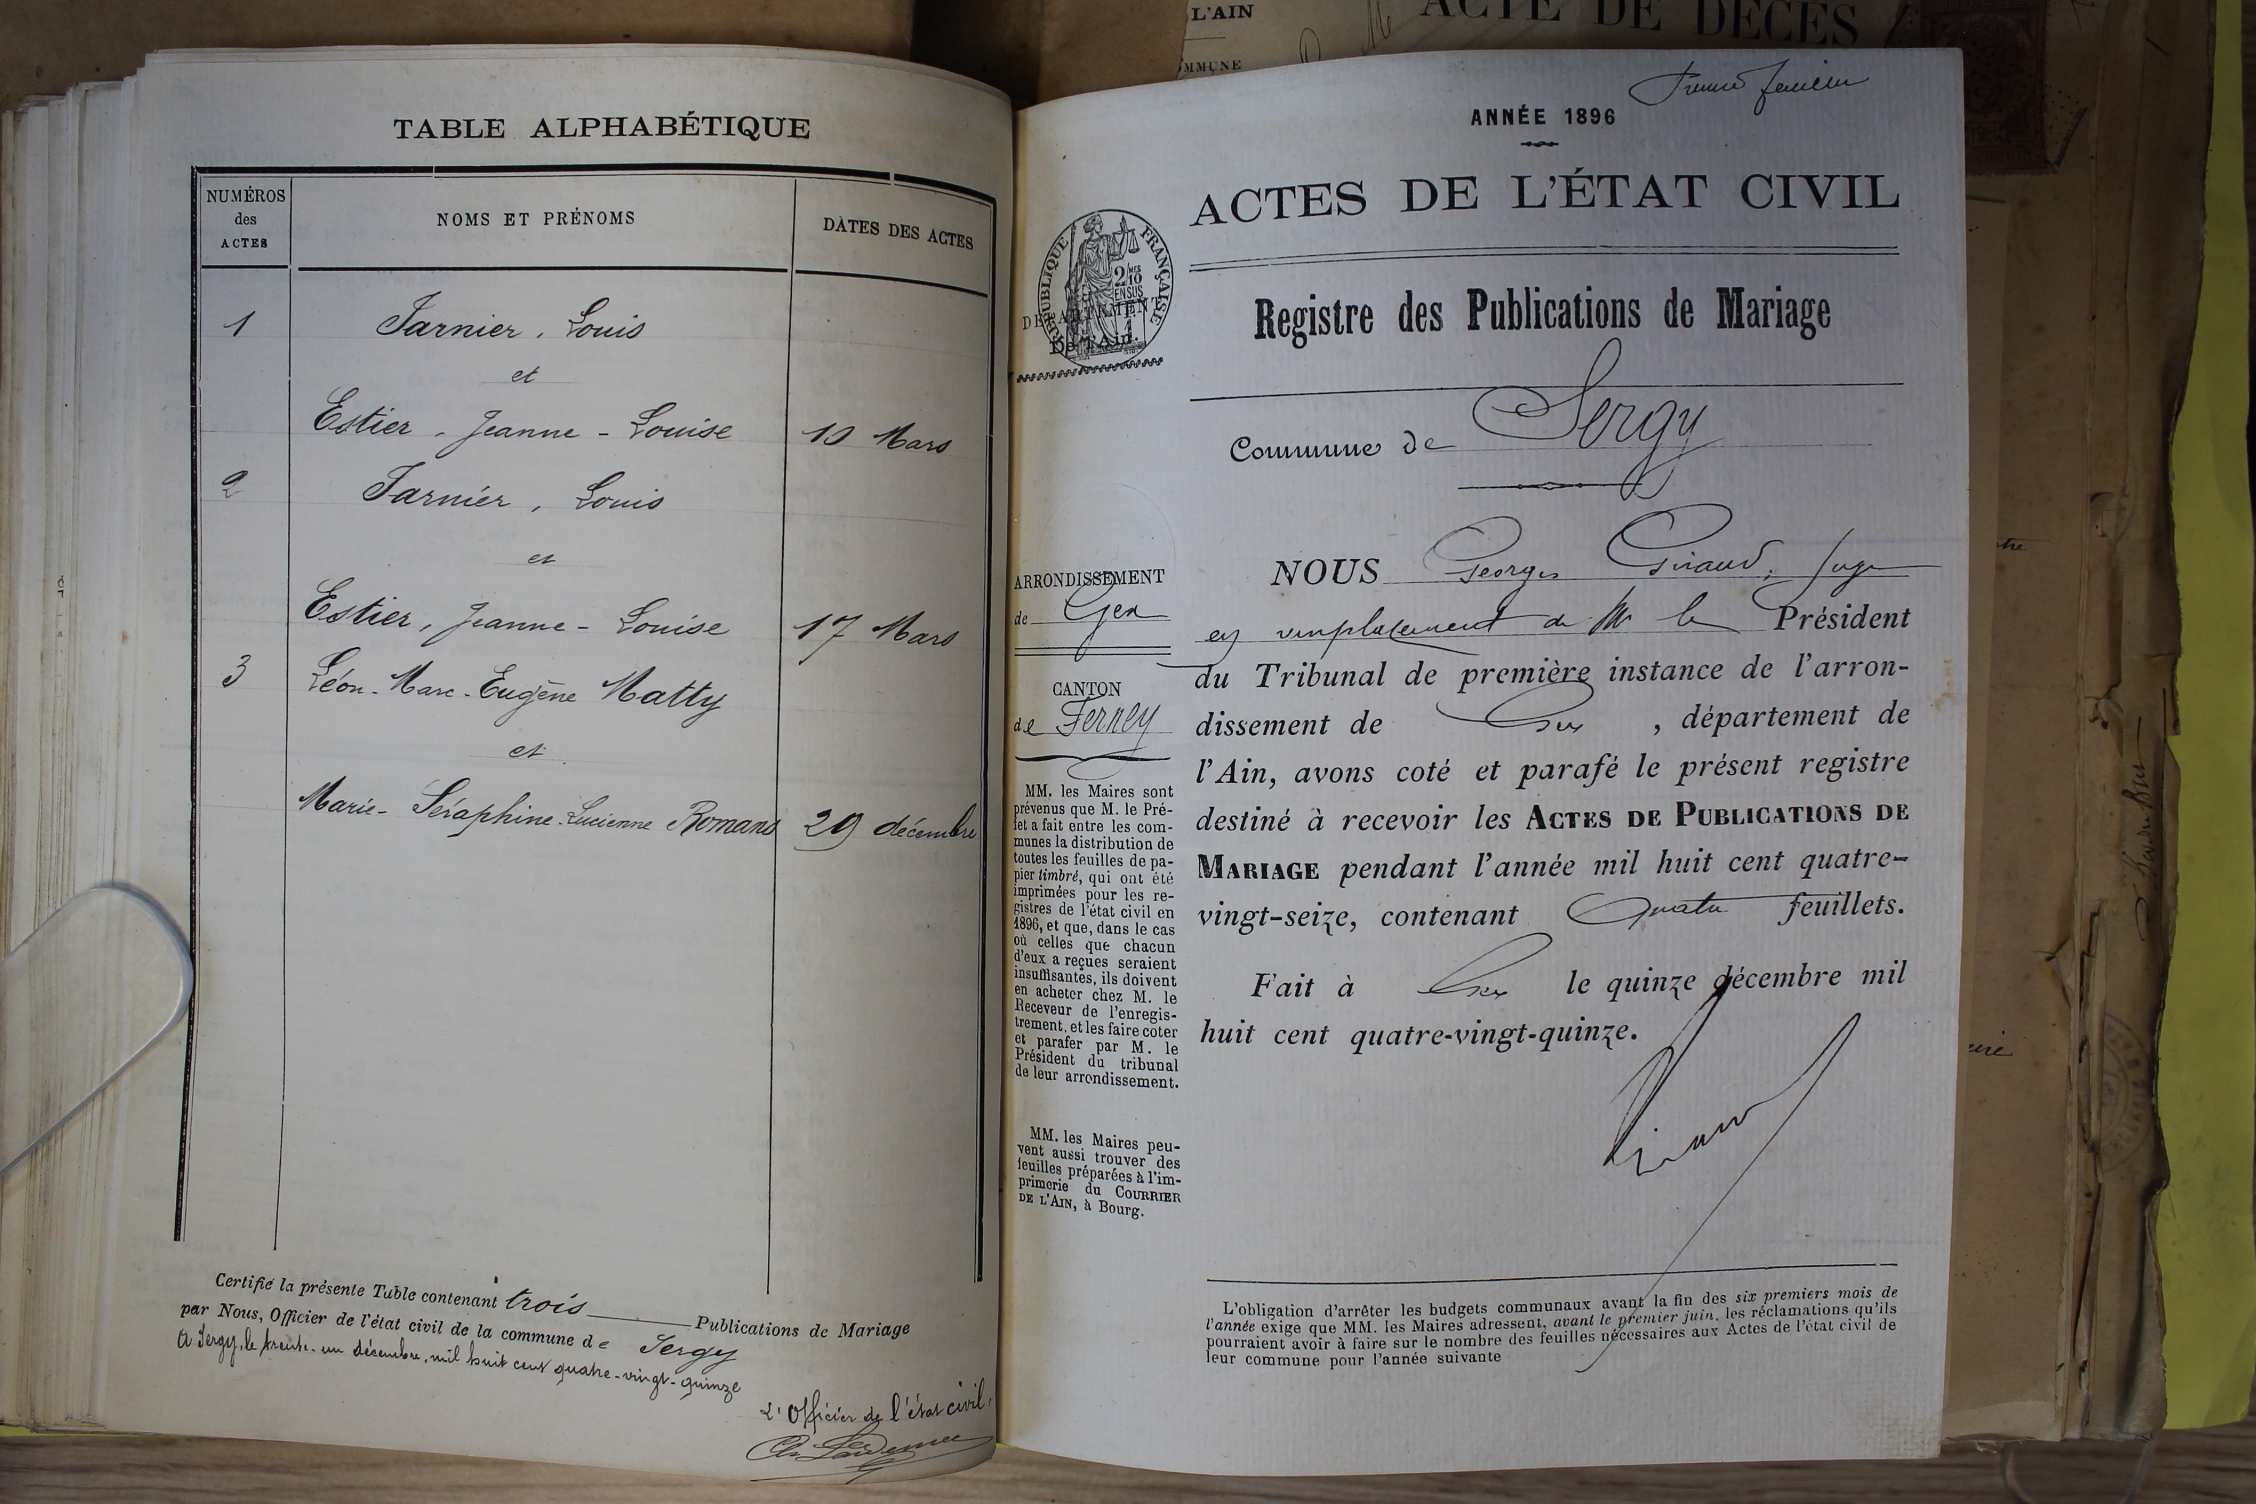 L'AIN
ACTE DE DÉCÈS
OMMUNE
TABLE ALPHABÉTIQUE
NUMÉROS des ACTES
NOMS ET PRÉNOMS
DATES DES ACTES
1
Jarnier, Louis
et
Estier, Jeanne-Louise
10 Mars
2
Jarnier, Louis
et
Estier, Jeanne-Louise
17 Mars
3
Léon-Marc-Eugène Matty
et
Marie-Séraphine-Lucienne Romand
29 décembre
Certifié la présente Table contenant trois Publications de Mariage
par Nous, Officier de l'état civil de la commune de Sergy
A Sergy, le trente-un décembre, mil huit cent quatre-vingt-quinze
L'officier de l'état civil,
ANNÉE 1896
ACTES DE L'ÉTAT CIVIL
RÉPUBLIQUE FRANÇAISE
2/10 EN SUS
DÉPARTEMENT
De l'Ain.
Registre des Publications de Mariage
Commune de Sergy
ARRONDISSEMENT
de Gex
CANTON
de Ferney
MM. les Maires sont
prévenus que M. le Pré-
fet a fait entre les com-
munes la distribution de
toutes les feuilles de pa-
pier timbré, qui ont été
imprimées pour les re-
gistres de l'état civil en
1896, et que, dans le cas
où celles que chacun
d'eux a reçues seraient
insuffisantes, ils doivent
en acheter chez M. le
Receveur de l'enregis-
trement, et les faire coter
et parafer par M. le
Président du tribunal
de leur arrondissement.
MM. les Maires peu-
vent aussi trouver des
feuilles préparées à l'im-
primerie du COURRIER
DE L'AIN, à Bourg.
NOUS Georges Giraud, Juge
en remplacement de Mr le Président
du Tribunal de première instance de l'arron-
dissement de Gex, département de
l'Ain, avons coté et parafé le présent registre
destiné à recevoir les ACTES DE PUBLICATIONS DE
MARIAGE pendant l'année mil huit cent quatre-
vingt-seize, contenant Quatre feuillets.
Fait à Gex le quinze décembre mil
huit cent quatre-vingt-quinze.
Giraud
L'obligation d'arrêter les budgets communaux avant la fin des six premiers mois de
l'année exige que MM. les Maires adressent, avant le premier juin, les réclamations qu'ils
pourraient avoir à faire sur le nombre des feuilles nécessaires aux Actes de l'état civil de
leur commune pour l'année suivante